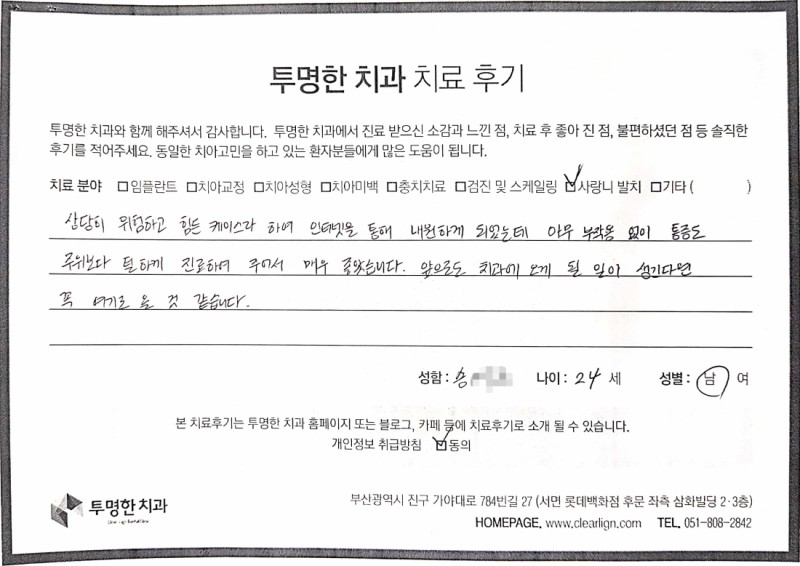 투명한 치과 치료 후기
투명한 치과와 함께 해주셔서 감사합니다. 투명한 치과에서 진료 받으신 소감과 느낀 점, 치료 후 좋아 진 점, 불편하셨던 점 등 솔직한
후기를 적어주세요. 동일한 치아고민을 하고 있는 환자분들에게 많은 도움이 됩니다.
치료 분야 □임플란트 □치아교정 □치아성형 □치아미백 □충치치료 □검진 및 스케일링 ☑사랑니 발치 □기타 ( )
상당히 위험하고 힘든 케이스라 하여 인터넷을 통해 내원하게 되었는데 아무 부작용 없이 통증도
주위보다 덜하게 진료하여 주어서 매우 좋았습니다. 앞으로도 치과에 오게 될 일이 생긴다면
꼭 여기로 올 것 같습니다.
성함: 송 나이: 24 세 성별: 남 여
본 치료후기는 투명한 치과 홈페이지 또는 블로그, 카페 등에 치료후기로 소개 될 수 있습니다.
개인정보 취급방침 ☑동의
투명한 치과
부산광역시 진구 가야대로 784번길 27 (서면 롯데백화점 후문 좌측 삼화빌딩 2·3층)
HOMEPAGE. www.clearlign.com TEL. 051-808-2842